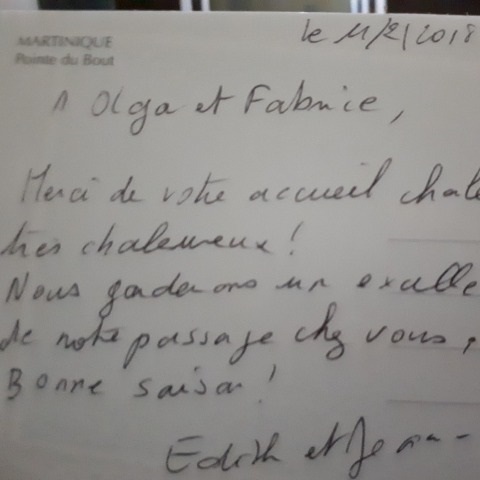 MARTINIQUE
Pointe du Bout
le 11/2/2018
A Olga et Fabrice,
Merci de votre accueil chale
très chaleureux!
Nous garderons un excelle
de notre passage chez vous,
Bonne saison!
Edith et Jean-